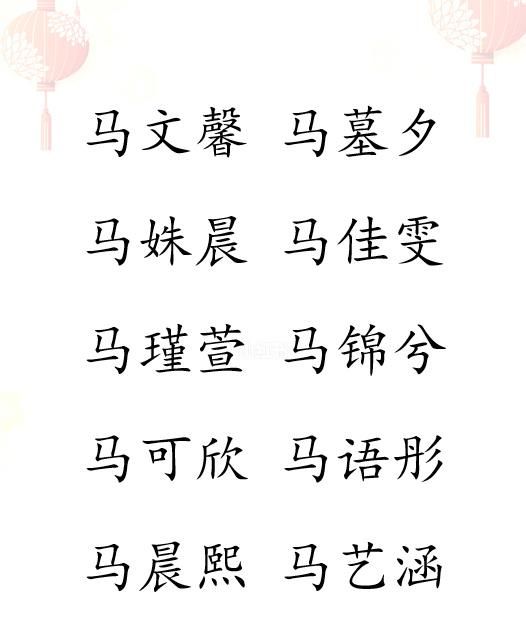 马文馨 马墓夕
马姝晨 马佳雯
马瑾萱 马锦兮
马可欣 马语彤
马晨熙 马艺涵